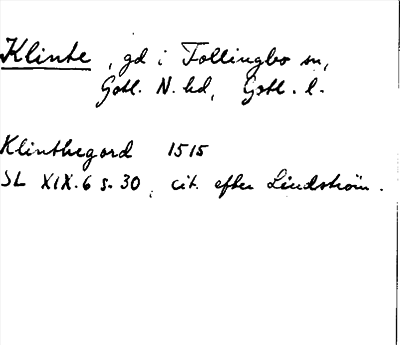 Klinte, gd i Follingbo sn,
Gotl. N. hd, Gotl. l.
Klinthegord 1515
SL XIX.6 s. 30, cit. efter Lindström.